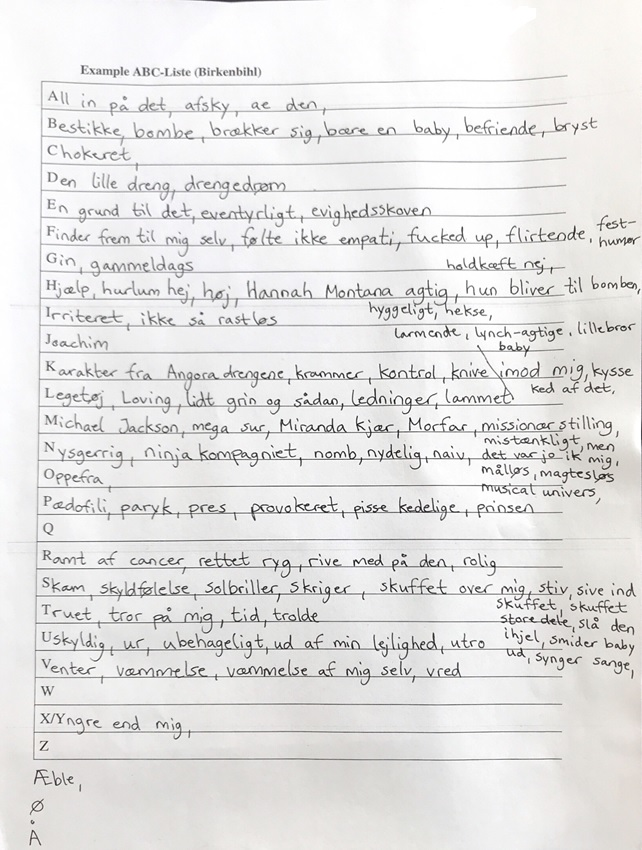 Example ABC-Liste (Birkenbihl)
All in på det, afsky, ae den,
Bestikke, bombe, brækker sig, bære en baby, befriende, bryst
Chokeret,
Den lille dreng, drengedrøm
En grund til det, eventyrligt, evighedsskoven
Finder frem til mig selv, følte ikke empati, fucked up, flirtende, fest-
humør
Gin, gammeldags
holdkæft nej,
Hjælp, hurlum hej, høj, Hannah Montana agtig, hun bliver til bomben,
hyggeligt, hekse,
Irriteret, ikke så rastløs
larmende, lynch-agtige, lillebror
baby
Joachim
Karakter fra Angora drengene, krammer, kontrol, knive imod mig, kysse
ked af det,
Legetøj, Loving, lidt grin og sådan, ledninger, lammet
Michael Jackson, mega sur, Miranda Kjær, Morfar, missionær stilling,
mistænkligt, men
det var jo ik mig,
målløs, magtesløs
musical univers,
Nysgerrig, ninja kompagniet, nomb, nydelig, naiv,
Oppefra,
Pædofili, paryk, pres, provokeret, pisse kedelige, prinsen
Q
Ramt af cancer, rettet ryg, rive med på den, rolig
Skam, skyldfølelse, solbriller, skriger, skuffet over mig, stiv, sive ind
skuffet, skuffet
store dele, slå den
ihjel, smider baby
ud, synger sange,
Truet, tror på mig, tid, trolde
Uskyldig, ur, ubehageligt, ud af min lejlighed, utro
Venter, væmmelse, væmmelse af mig selv, vred
W
X/Yngre end mig,
Z
Æble,
Ø
Å